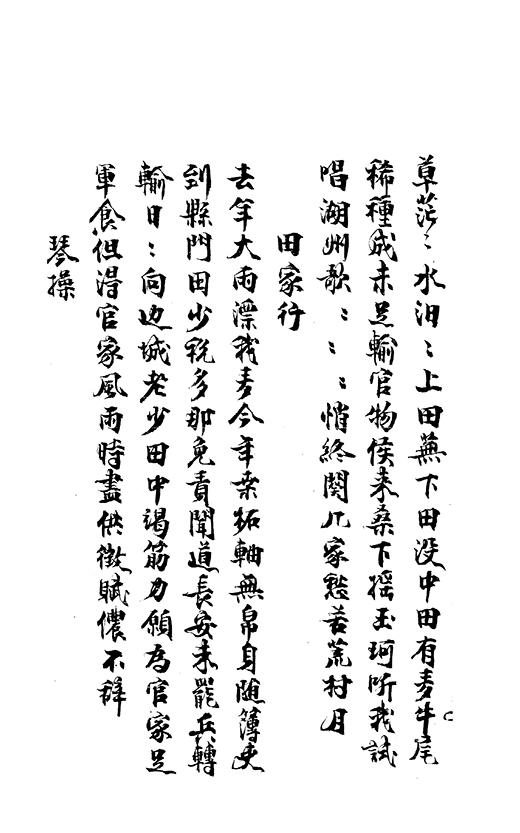 草茫〻水汨〻上田蕪下田没中田有麦牛尾
稀種成未足輸官物侯来桑下揺玉珂听我試
唱湖州歌〻〻〻悄終閧几家愁苦荒村月
田家行
去年大雨漂我麦今年桑柘軸無帛身随簿吏
到縣門田少税多那免責聞道長安未罷兵轉
輸日〻向边城老少田中竭筋力願為官家足
軍食但得官家風雨時盡供徴賦儂不辞
琴操